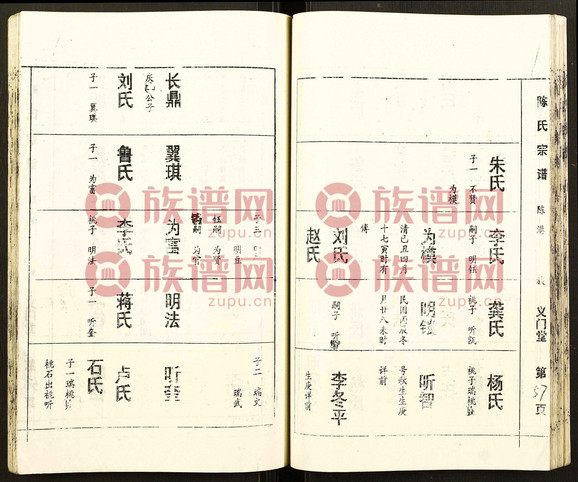 陈氏宗谱
义门堂
第57页
朱氏
子一 不贤
李氏
嗣子 明钰
桃子 听凯
龚氏
杨氏
桃子瑞桃
为模
清己丑四月
十七寅时有
传
刘氏
赵氏
明
民国丙辰冬
月廿八未时
嗣子 听智
听智
号政生生庚
详前
李冬平
生庚详前
长鼎
公子
刘氏
子一 翼琪
翼琪
鲁氏
子一 为富
为富
李氏
桃子 明法
明法
蒋氏
子一 听奎
子二 瑞文
瑞武
听奎
卢氏
石氏
子一瑞桃
桃石出桃听
族谱网
zupu.cn
族谱网
zupu.cn
族谱网
zupu.cn
族谱网
zupu.cn